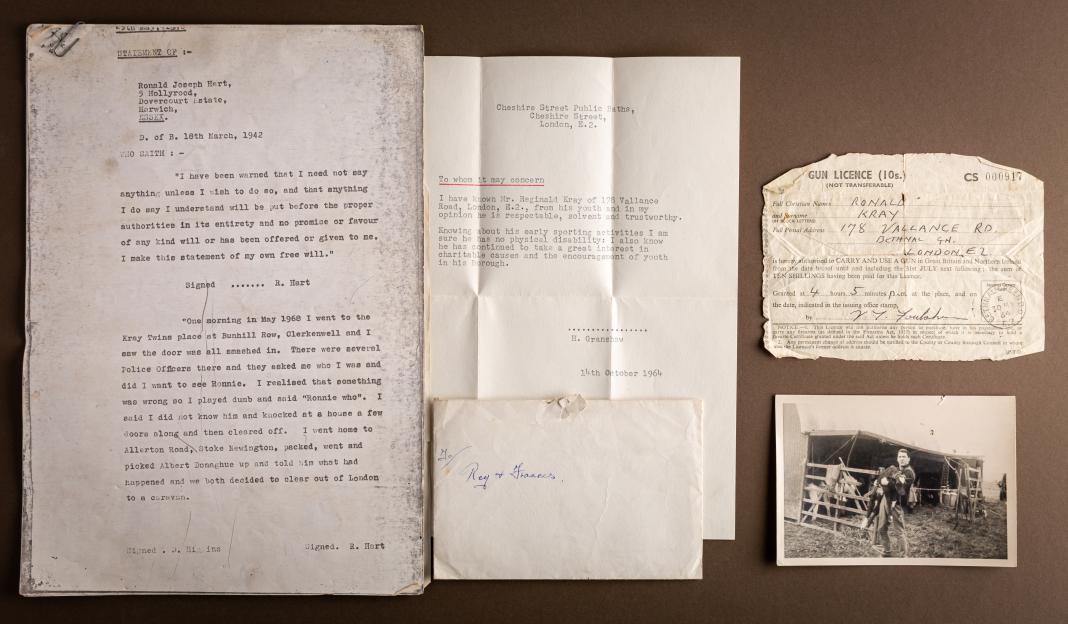 STATEMENT OF :-
Ronald Joseph Hart,
5 Hollyrood,
Dovercourt Estate,
Harwich,
ESSEX.
D. of B. 18th March, 1942
WHO SAITH : -
"I have been warned that I need not say
anything unless I wish to do so, and that anything
I do say I understand will be put before the proper
authorities in its entirety and no promise or favour
of any kind will or has been offered or given to me.
I make this statement of my own free will."
Signed ....... R. Hart
"One morning in May 1968 I went to the
Kray Twins place at Bunhill Row, Clerkenwell and I
saw the door was all smashed in. There were several
Police Officers there and they asked me who I was and
did I want to see Ronnie. I realised that something
was wrong so I played dumb and said "Ronnie who". I
said I did not know him and knocked at a house a few
doors along and then cleared off. I went home to
Allerton Road, Stoke Newington, packed, went and
picked Albert Donaghue up and told him what had
happened and we both decided to clear out of London
to a caravan.
Signed . D. Higgins Signed. R. Hart
Cheshire Street Public Baths,
Cheshire Street,
London, E.2.
To whom it may concern
I have known Mr. Reginald Kray of 178 Vallance
Road, London, E.2., from his youth and in my
opinion he is respectable, solvent and trustworthy.
Knowing about his early sporting activities I am
sure he has no physical disability; I also know
he has continued to take a great interest in
charitable causes and the encouragement of youth
in his Borough.
....................
H. Granshaw
14th October 1964
To/
Reg & Frances.
GUN LICENCE (10s.)
(NOT TRANSFERABLE)
CS 000917
Full Christian Names RONALD
and Surname KRAY
(IN BLOCK LETTERS)
Full Postal Address 178 VALLANCE RD.
BETHNAL GN.
LONDON E2
is hereby authorised to CARRY AND USE A GUN in Great Britain and Northern Ireland
from the date hereof until and including the 31st JULY next following; the sum of
TEN SHILLINGS having been paid for this Licence.
Granted at 4 hours 5 minutes p.m. at the place, and on
the date, indicated in the issuing office stamp,
by